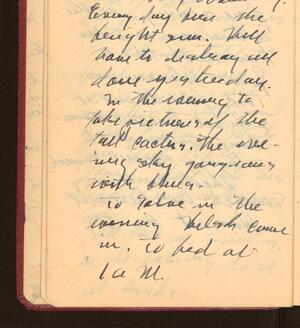 Every day here the
bright sun. Will
have to destroy all
done yesterday.
In the evening to
take pictures of the
tall cactus. The eve-
ning sky gorgeous
with blues.
in the
evening came
in. To bed at
1 a M.